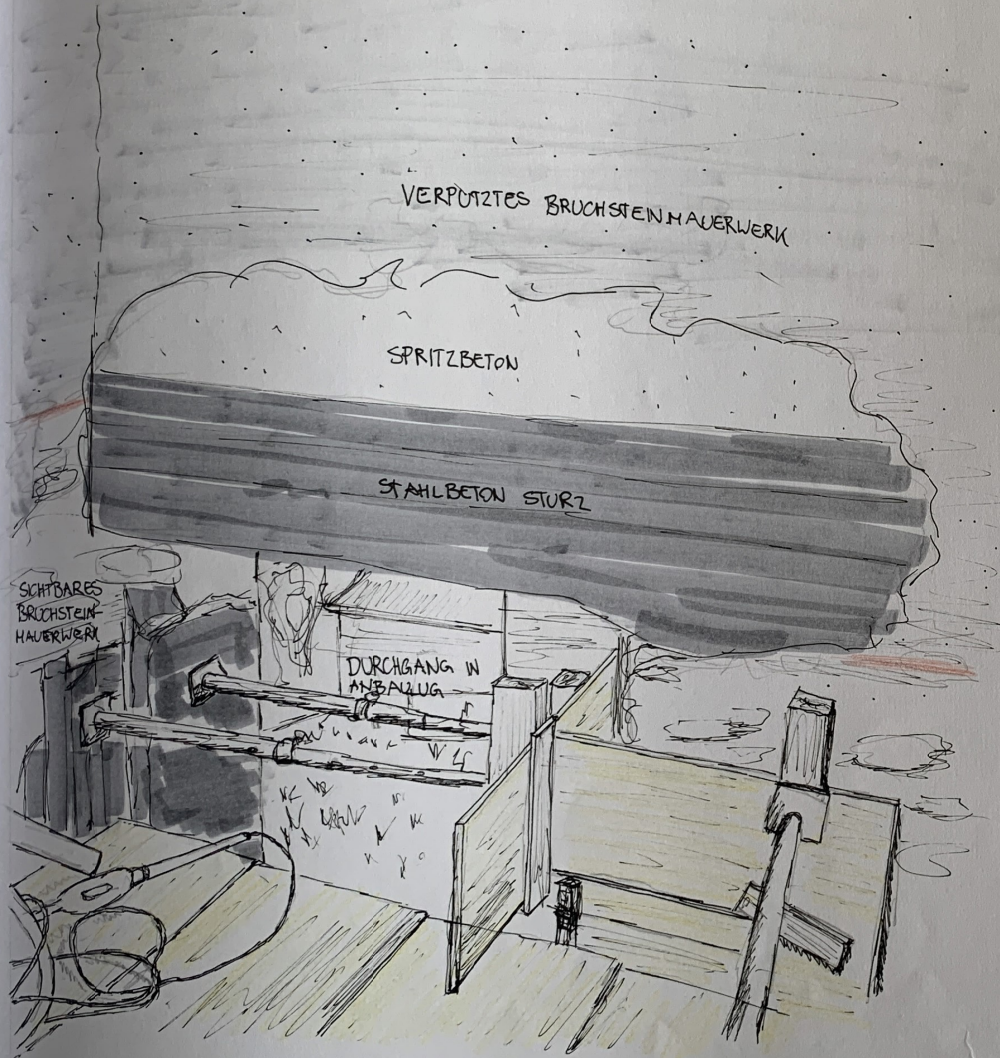 VERPUTZTES BRUCHSTEINMAUERWERK
SPRITZBETON
STAHLBETON STURZ
SICHTBARES
BRUCHSTEIN-
MAUERWERK
DURCHGANG IN
ANBAUZUG